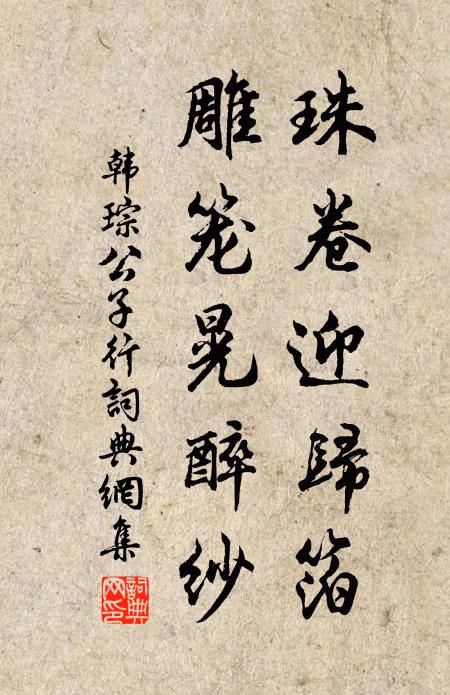 珠卷迎歸箔
雕笼晃醉纱
韩琮公子行詞典網集
詞典网印